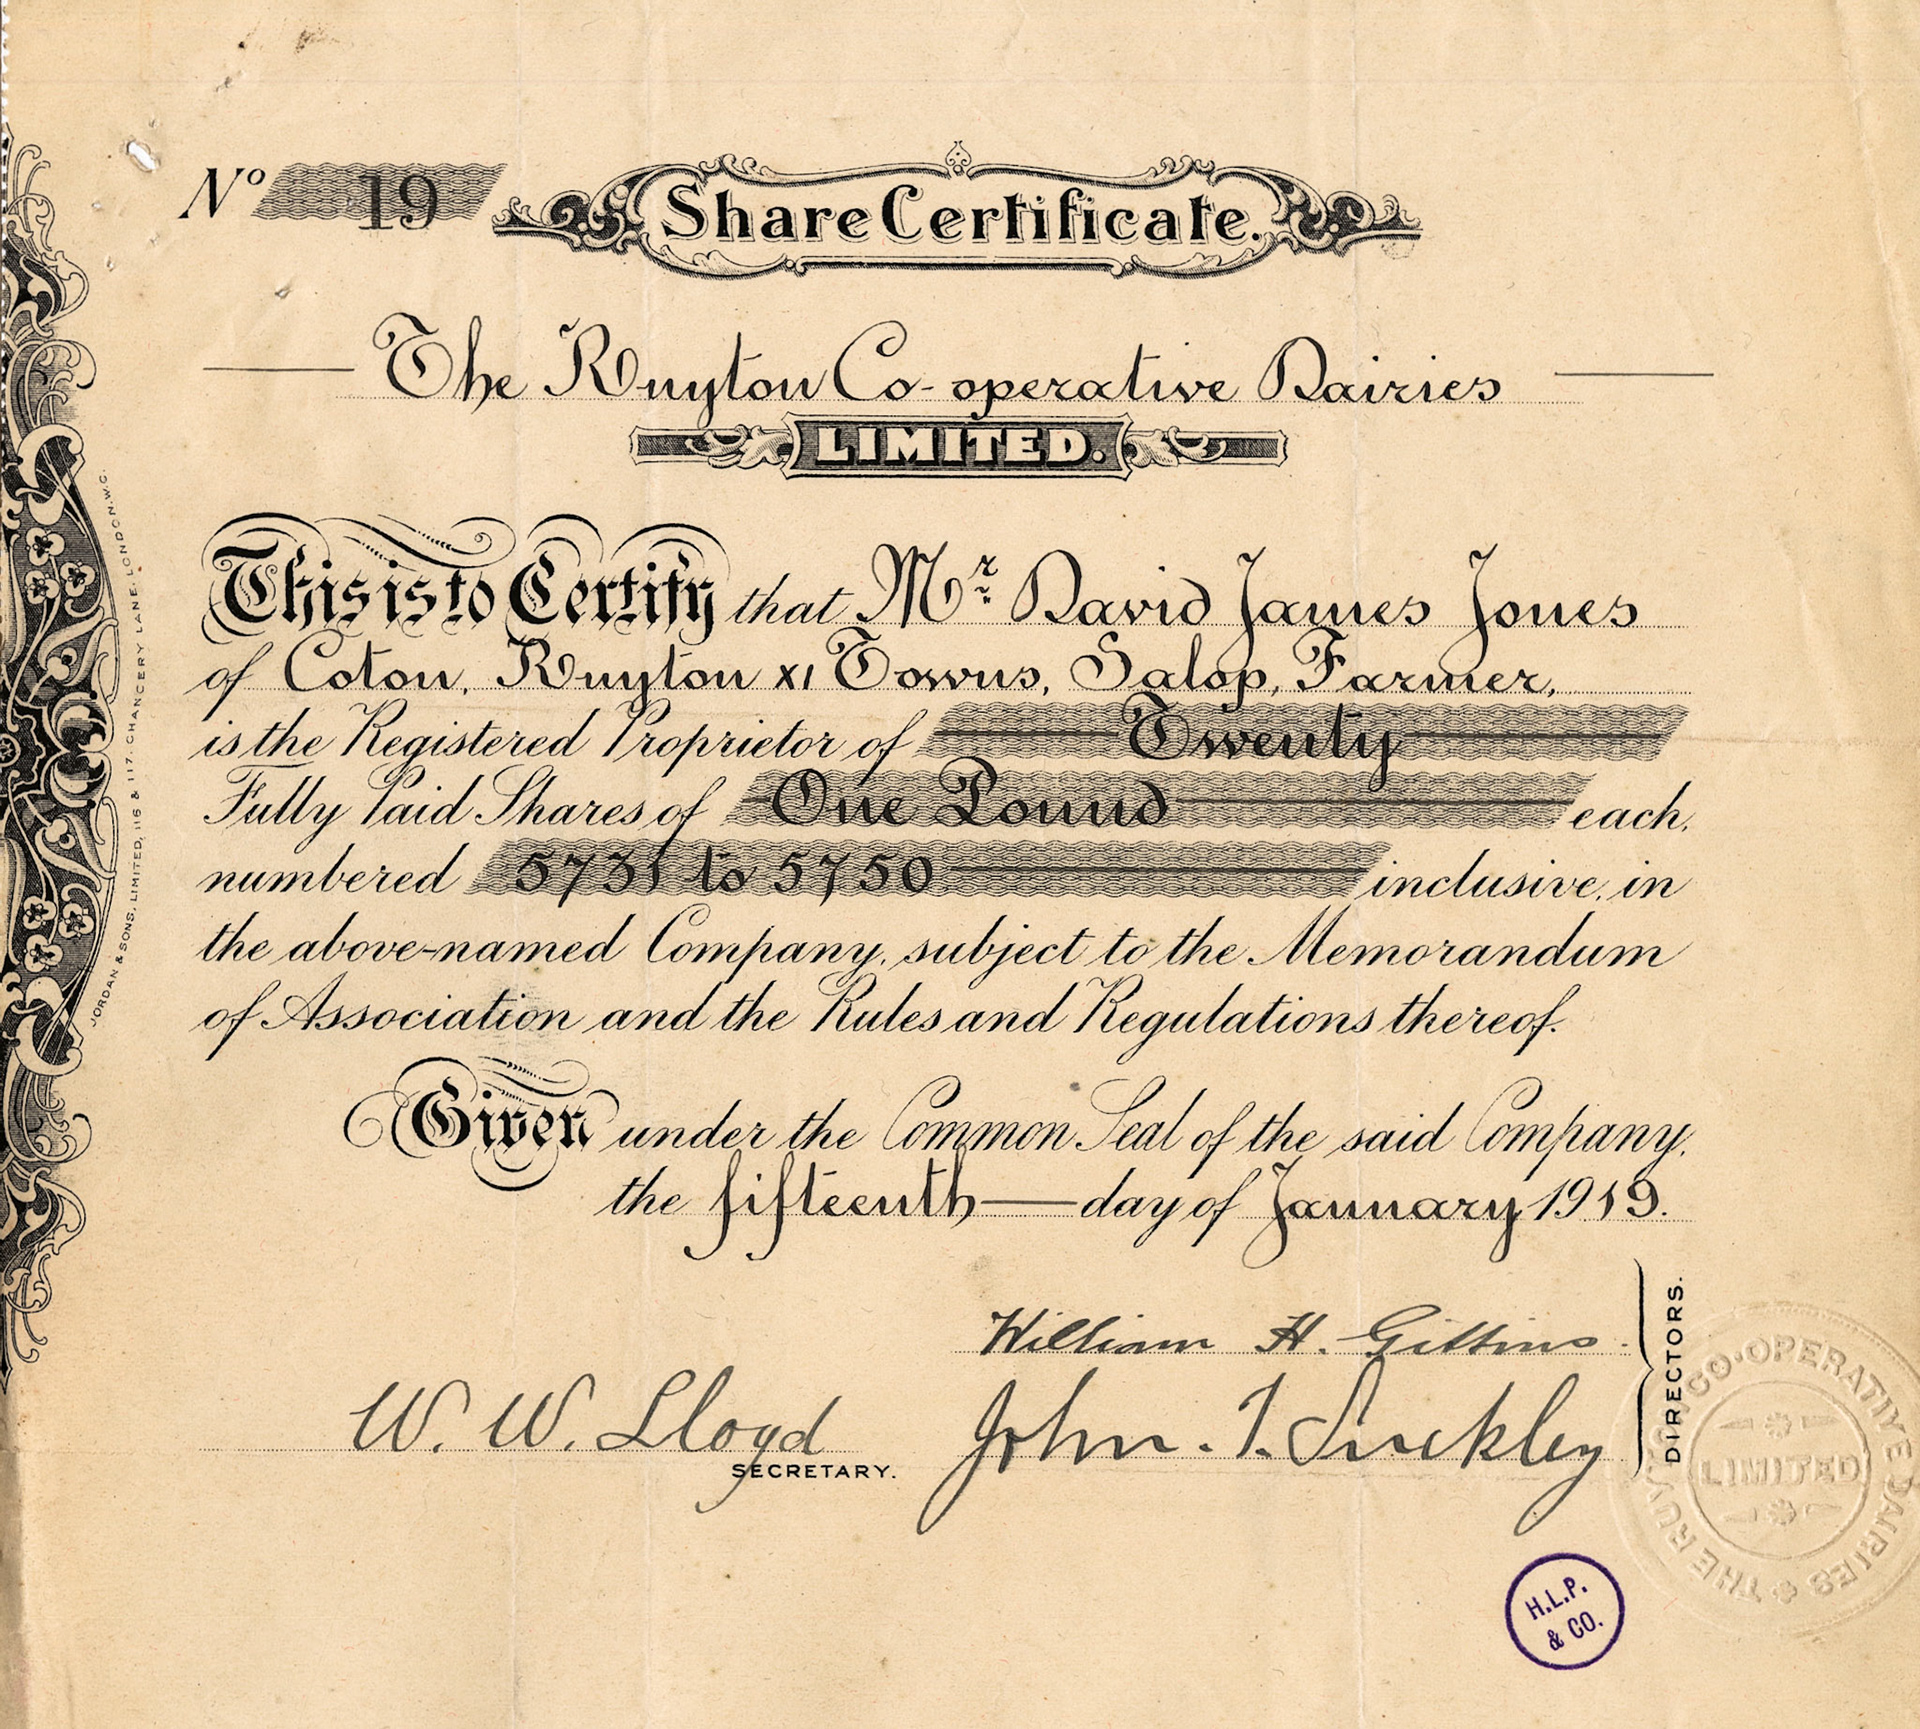 Nº 19
Share Certificate.
The Ruyton Co-operative Dairies
LIMITED.
This is to Certify that Mr David James Jones
of Coton, Ruyton XI Towns, Salop, Farmer,
is the Registered Proprietor of Twenty
Fully Paid Shares of One Pound each,
numbered 5731 to 5750 inclusive, in
the above-named Company, subject to the Memorandum
of Association and the Rules and Regulations thereof.
Given under the Common Seal of the said Company,
the fifteenth day of January 1919.
William H. Gittins
W. W. Lloyd
SECRETARY.
John T. Suckley
DIRECTORS.
THE RUYTON CO-OPERATIVE DAIRIES
LIMITED
H.L.P.
& CO.
JORDAN & SONS, LIMITED, 116 & 117, CHANCERY LANE, LONDON, W.C.